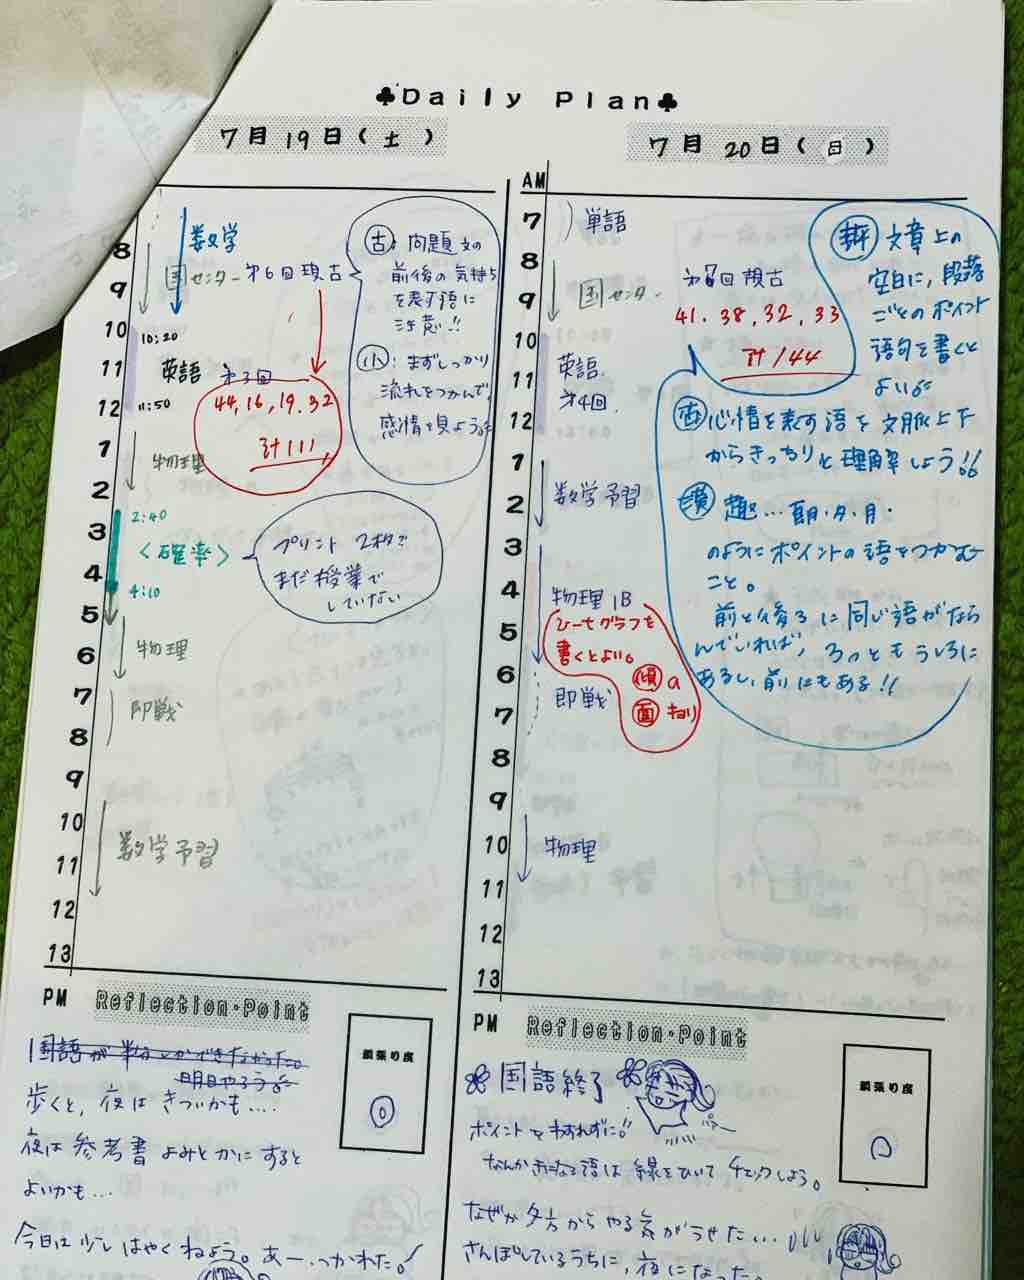 ♣Daily Plan♣
7月19日(土)
8
9
10
11
12
1
2
3
4
5
6
7
8
9
10
11
12
13
数学
国センター 第6回 現古
10:20
英語 第3回
11:50
44, 16, 19, 32
計111
物理
2:40
<確率>
4:10
プリント2枚で
まだ授業で
していない
物理
即戦
数学予習
古:問題文の
前後の気持ち
を表す語に
注意!!
小:まずしっかり
流れをつかんで、
感情を見よう
PM Reflection・Point
頑張り度
国語が半分しかできなかった。
明日やろう
歩くと、夜はきついかも....
夜は参考書よみとかにすると
よいかも...
今日は少しはやくねよう。あー、つかれた。
7月20日(日)
AM
7
8
9
10
11
12
1
2
3
4
5
6
7
8
9
10
11
12
13
単語
国センター 現古
41. 38, 32, 33
計144
英語
第4回
数学予習
物理1B
v-tグラフを
書くとよい。
傾 a
面 キョリ
即戦
物理
評 文章上の
空白に、段落
ごとのポイント
語句を書くと
よい
古 心情を表す語を文脈上下
からきっちりと理解しよう!!
漢 趣…朝・夕・月・
のようにポイントの語をつかむ
こと。
前と後ろに同じ語がなら
んでいれば、
あるし、前にもある!!
PM Reflection・Point
頑張り度
国語終了
ポイントをわすれずに。
なんか気になる語は線をひいてチェックしよう。
なぜか夕方からやる気がうせた...
さんぽしているうちに、夜になった。